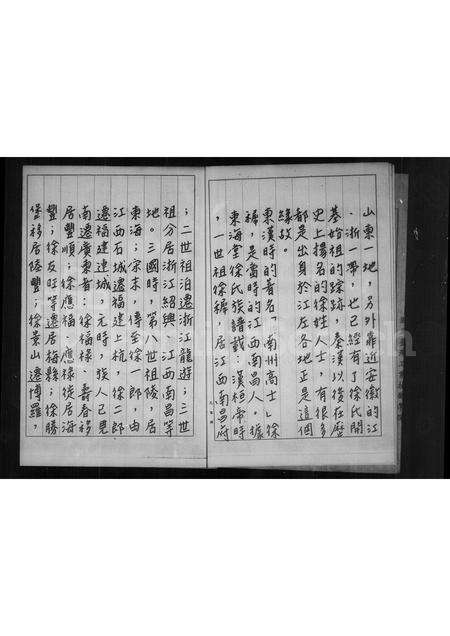 山東一地，另外靠近安徽的江
、浙一帶，也已經有了徐氏開
基始祖的踪跡，秦漢以後在歷
史上揚名的徐姓人士，有很多
都是出身於江左各地正是這個
緣故。
東漢時的著名「南州高士」徐
穉，是當時的江西南昌人。據
東海堂徐氏族譜載：漢桓帝時
，一世祖徐穉，居江西南昌府
；二世祖泊遷浙江龍游；三世
祖分居浙江紹興、江西南昌等
地。三國時，第八世祖陵，居
東海；宋末，傳至徐一郎，由
江西石城遷福建上杭，徐二郎
遷福建連城，元時，族人已見
南遷廣東者：徐福祿、壽春移
居豐順；徐應福、應祿後居海
豐；徐友旺等遷居梅縣；徐勝
堡移居陸豐；徐景山遷博羅，